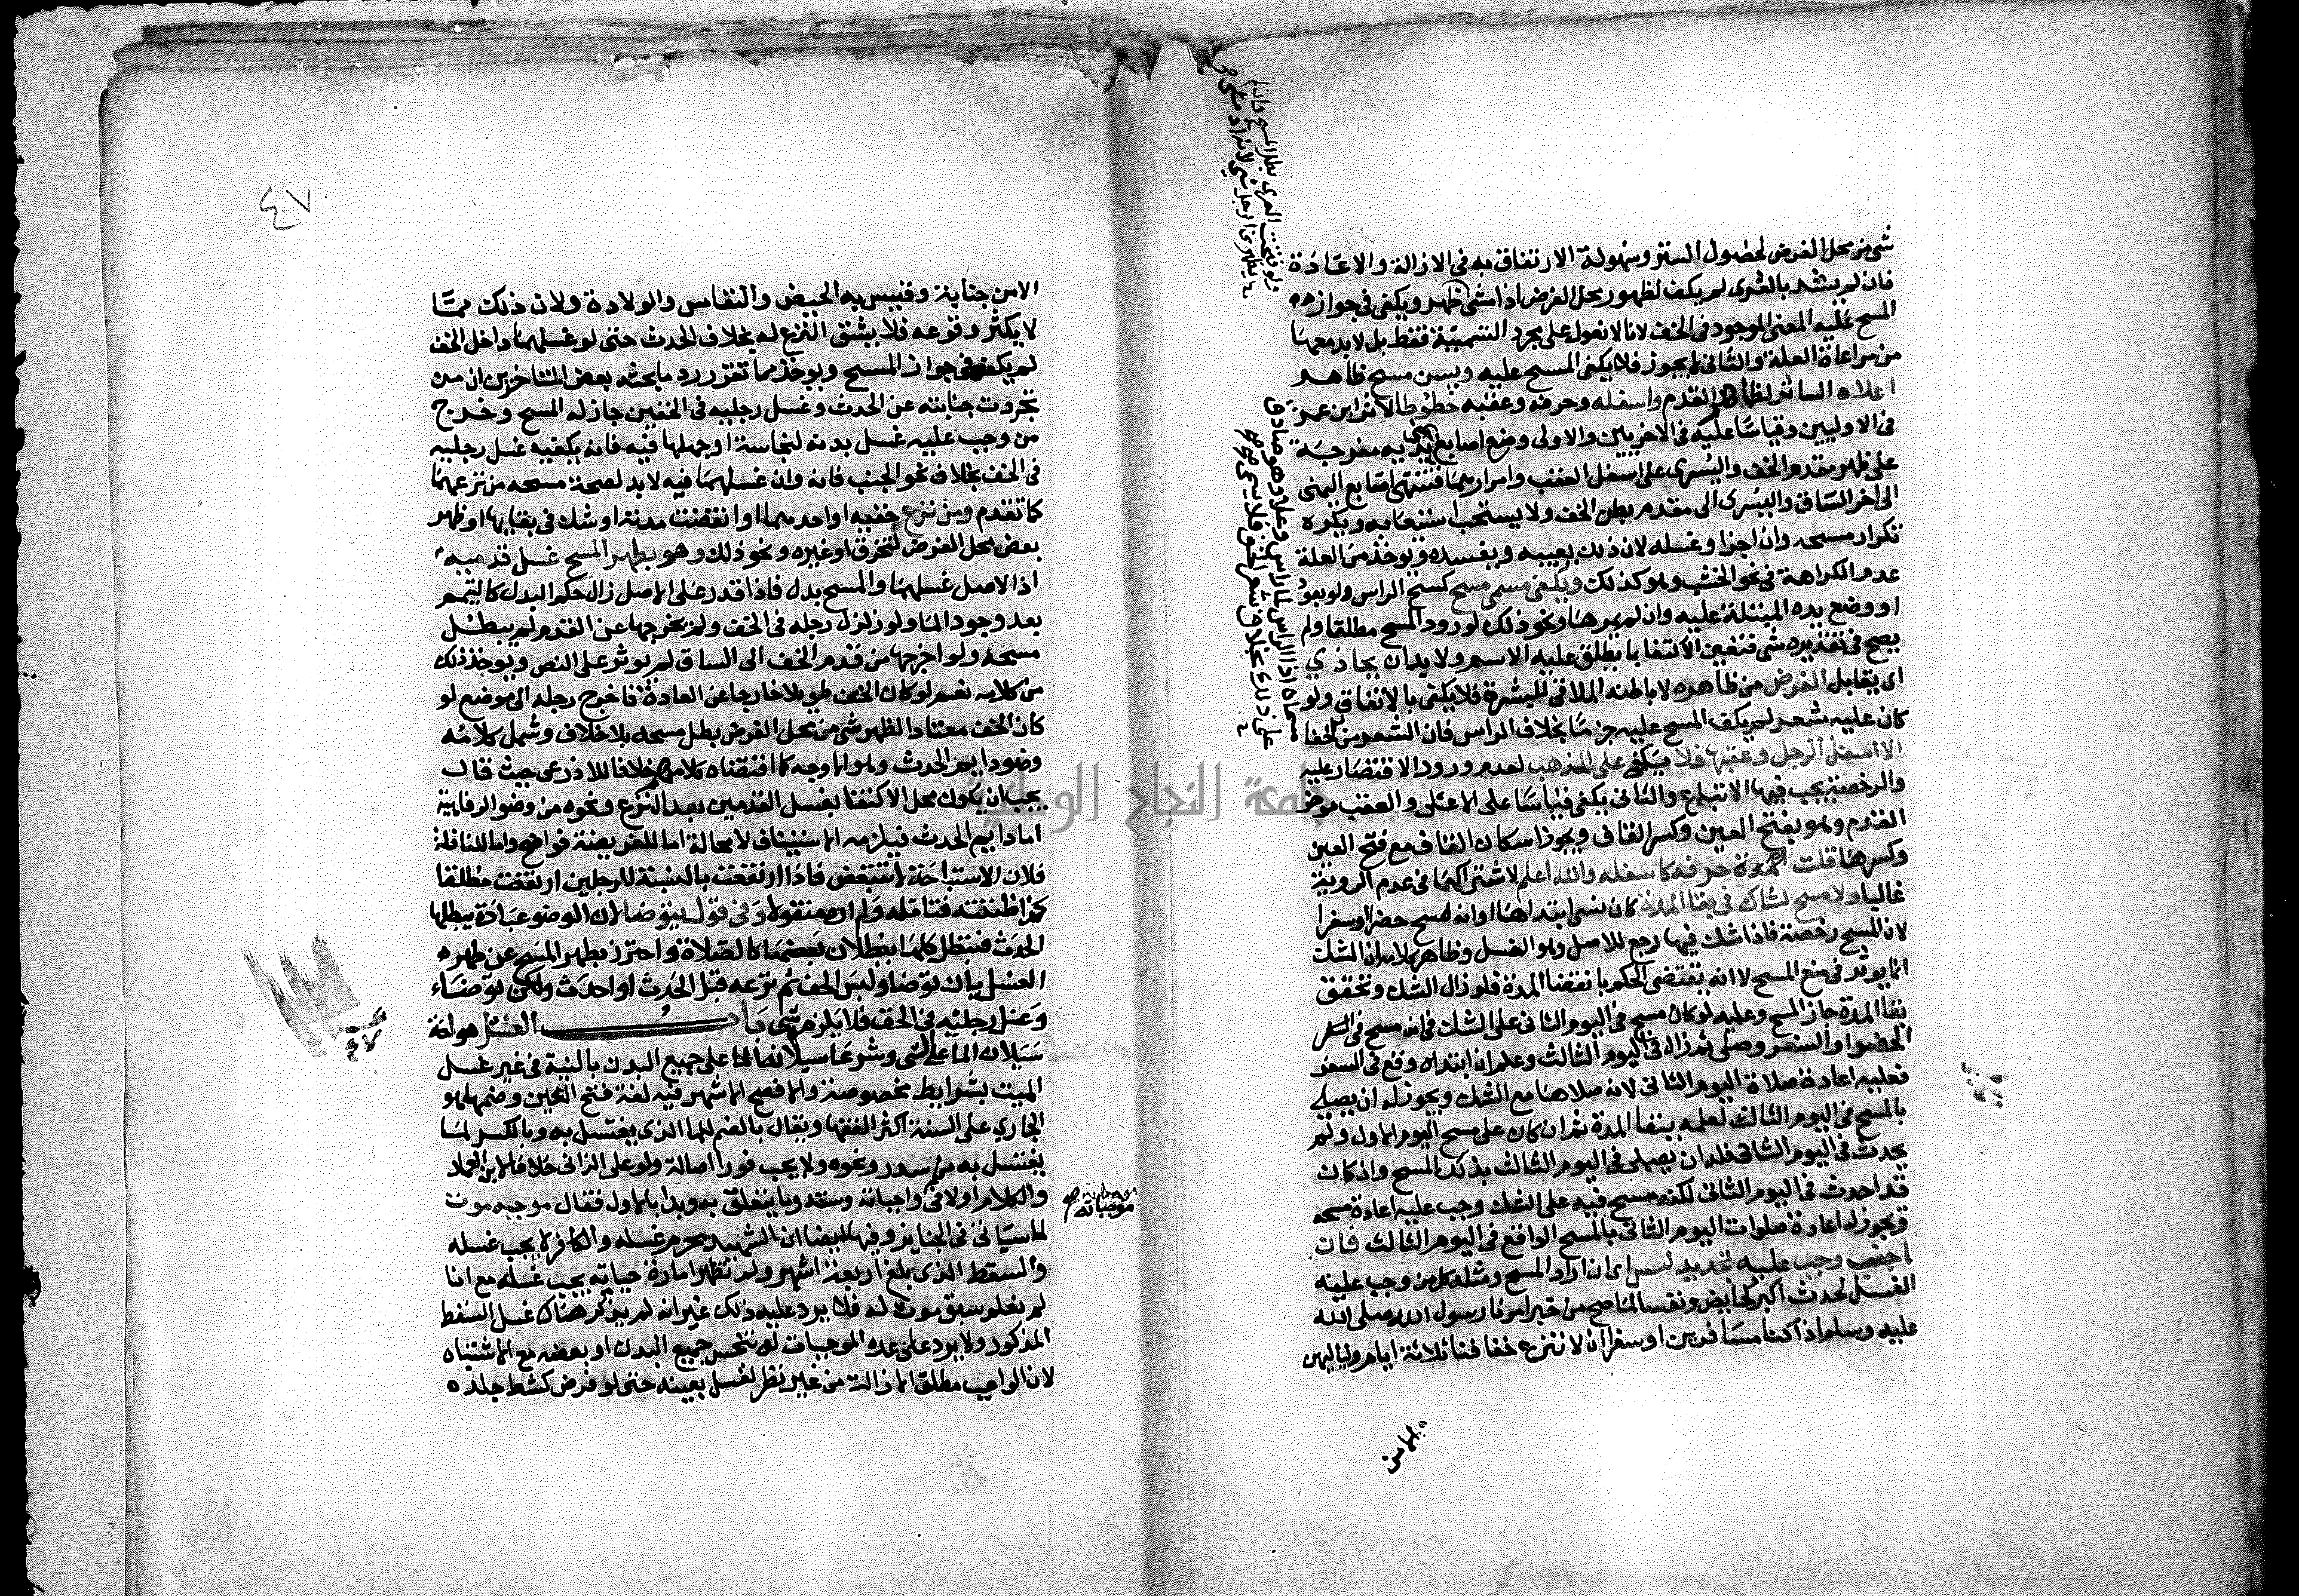 شي من محل الفرض لحصول الستر وسهولة الارتفاق به في الازالة والاعادة
فان لم يشد بالعرى لم يكف لظهور محل الفرض اذا مشى ويكفي في جوازه
المسح عليه المعنى الموجود في الخف لانا لا نعول على مجرد التسمية فقط بل لابد معها
من مراعاة العلة والثاني لا يجوز فلا يكفي المسح عليه ويسن مسح ظاهر
اعلاه الساتر لظاهر القدم واسفله وحرفه وعقبه خطوطا لاثر ابن عمر
في الاوليين وقياسا عليه في الاخريين والاولى وضع اصابع يديه مفرجة
على ظهر مقدم الخف واليسرى على اسفل العقب وامرارهما فتنتهي اصابع اليمنى
الى اخر الساق واليسرى الى مقدم بطن الخف ولا يستحب استيعابه ويكره
تكرار مسحه وان اجزا وغسله لان ذلك يعيبه ويفسده ويوخذ من العلة
عدم الكراهة في نحو الخشب وهو كذلك ويكفي مسمى مسح كمسح الراس ولو بعود
او وضع يده المبتلة عليه وان لم يمرها ونحو ذلك لورود المسح مطلقا ولم
يصح في تقديره شي فتعين الاكتفا بما يطلق عليه الاسم ولابد ان يحاذي
اي يقابل الفرض من ظاهره لا باطنه الملاقي للبشرة فلا يكفي بالاتفاق ولو
كان عليه شعر لم يكف المسح عليه جزما بخلاف الراس فان الشعر من
الا اسفل الرجل وعقبها فلا يكفي على المذهب لعدم ورود الاقتصار عليه
والرخصة يجب فيها الاتباع والثاني يكفي قياسا على الاعلى والعقب موخر
القدم وهو بفتح العين وكسر القاف ويجوز اسكان القاف مع فتح العين
وكسرها قلت حرفه كاسفله والله اعلم لاشتراكهما في عدم الروية
غالبا ولا مسح لشاك في بقا المدة كان نسي ابتداها او انه مسح حضرا او سفرا
لان المسح رخصة فاذا شك فيها رجع للاصل وهو الغسل وظاهر كلامه ان الشك
انما يوثر في منع المسح لا انه يقتضي الحكم بانقضا المدة فلو زال الشك وتحقق
بقا المدة جاز المسح وعليه لو كان مسح في اليوم الثاني على الشك في انه مسح في
الحضر او السفر وصلى ثم زال في اليوم الثالث وعلم ان ابتداه وقع في السفر
فعليه اعادة صلاة اليوم الثاني لانه صلاها مع الشك ويجوز له ان يصلي
بالمسح في اليوم الثالث لعلمه ببقا المدة ثم ان كان على مسح اليوم الاول ولم
يحدث في اليوم الثاني فله ان يصلي في اليوم الثالث بذلك المسح وان كان
قد احدث في اليوم الثاني لكنه مسح فيه على الشك وجب عليه اعادة مسحه
ويجوز له اعادة صلوات اليوم الثاني بالمسح الواقع في اليوم الثالث فان
اجنب وجب عليه تجديد لبس اي ان اراد المسح ومثله كل من وجب عليه
الغسل لحدث اكبر كحايض ونفسا لما صح من خبر امرنا رسول الله صلى الله
عليه وسلم اذا كنا مسافرين او سفرا ان لا ننزع خفافنا ثلاثة ايام ولياليهن
٤٧
الا من جنابة وقيس به الحيض والنفاس والولادة ولان ذلك مما
لا يكثر وقوعه فلا يشق النزع له بخلاف الحدث حتى لو غسلهما داخل الخف
لم يكف في جواز المسح ويوخذ مما تقرر رد ما بحثه بعض المتاخرين ان من
تجردت جنابته عن الحدث وغسل رجليه في الخفين جاز له المسح وخرج
من وجب عليه غسل بدنه لنجاسة او جهلها فيه فانه يكفيه غسل رجليه
في الخف بخلاف نحو الجنب فانه وان غسلهما فيه لابد لصحة مسحه من نزعهما
كما تقدم ومن نزع خفيه او احدهما او انقضت مدته او شك في بقايها او ظهر
بعض محل الفرض لتخرق او غيره ونحو ذلك وهو بطهر المسح غسل قدميه
اذ الاصل غسلهما والمسح بدل فاذا قدر على الاصل زال حكم البدل كالتيمم
بعد وجود الما ولو زلزل رجله في الخف ولم يخرجها عن القدم لم يبطل
مسحه ولو اخرجها من قدم الخف الى الساق لم يوثر على النص ويوخذ ذلك
من كلامه نعم لو كان الخف طويلا خارجا عن العادة فاخرج رجله الى موضع لو
كان الخف معتادا لظهر شي من محل الفرض بطل مسحه بلا خلاف وشمل كلامه
وضو دايم الحدث وهو الاوجه كما اقتضاه كلامهم خلافا للاذرعي حيث قال
يجب ان يكون محل الاكتفا بغسل القدمين بعد النزع ونحوه من وضو الرفاهية
اما دايم الحدث فيلزمه الاستيناف لا محالة اما للفريضة فواضح واما للنافلة
فلان الاستباحة لا تتبعض فاذا ارتفعت بالنسبة للرجلين ارتفعت مطلقا
كذا ظننته فتامله ولم اره منقولا وفي قول يتوضا لان الوضو عبادة يبطلها
الحدث فتبطل كلها ببطلان بعضها كالصلاة واحترز بطهر المسح عن طهره
الغسل بان توضا ولبس الخف ثم نزعه قبل الحدث او احدث ولكن توضا
وغسل رجليه في الخف فلا يلزمه شي باب الغسل هو لغة
سيلان الما على الشي وشرعا سيلانه على جميع البدن بالنية في غير غسل
الميت بشرايط مخصوصة والافصح الاشهر فيه لغة فتح الغين وضمها هو
الجاري على السنة اكثر الفقها ويقال بالضم للما الذي يغتسل به وبالكسر لما
يغتسل به من سدر ونحوه ولا يجب فورا اصالة ولو على الزاني خلافا لابن العماد
والكلام اولا في واجباته وسننه وما يتعلق به وبدا بالاول فقال موجبه موت
لما سياتي في الجنايز وفيها ايضا ان الشهيد يحرم غسله والكافر لا يجب غسله
والسقط الذي بلغ اربعة اشهر ولم تظهر امارة حياته يجب غسله مع انا
لم نعلم سبق موت له فلا يرد عليه ذلك غير انه لم يذكر هناك غسل السقط
المذكور ولا يرد على عده الموجبات لو تنجس جميع البدن او بعضه مع الاشتباه
لان الواجب مطلق الازالة من غير نظر لغسل بعينه حتى لو فرض كشط جلده